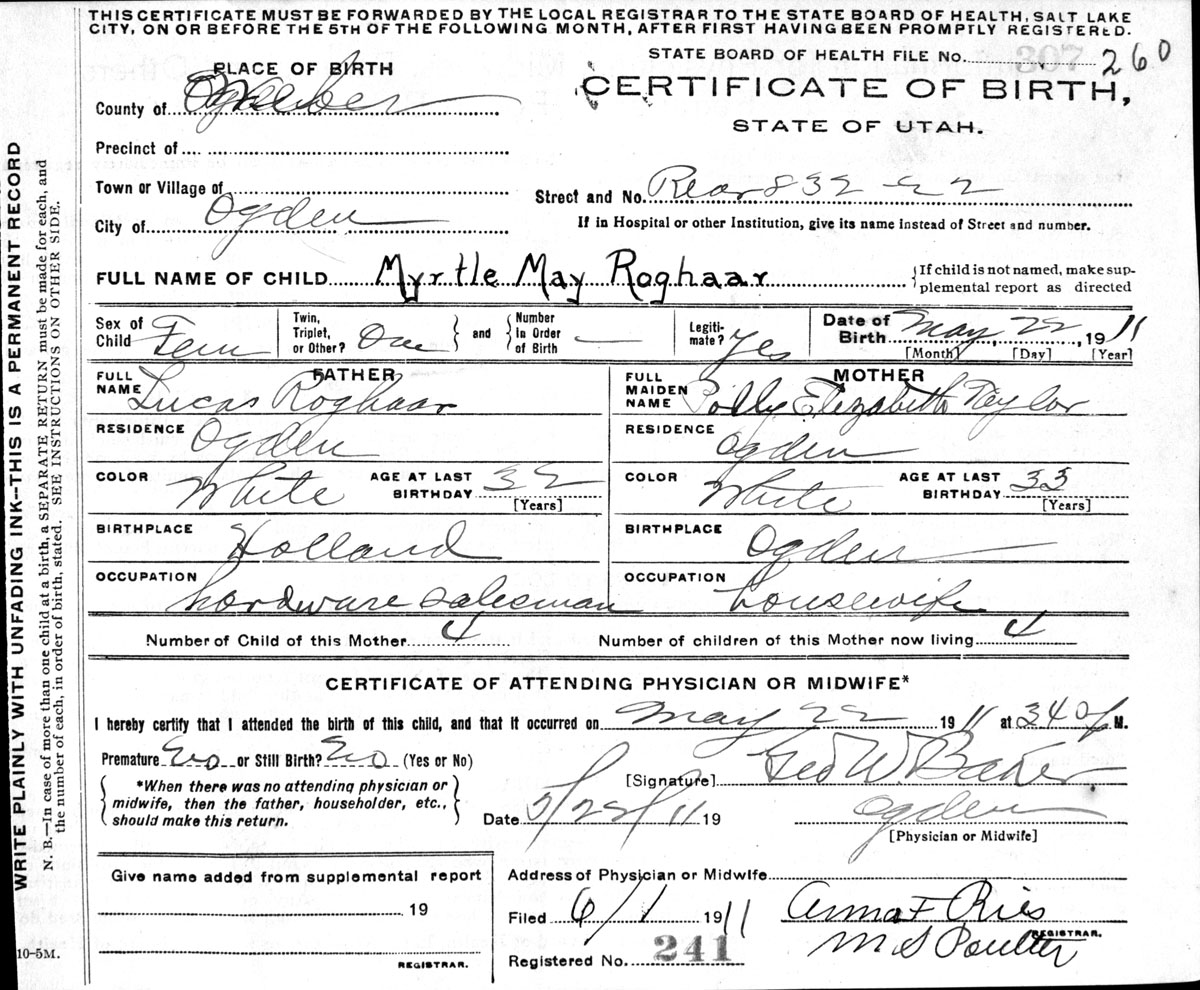 THIS CERTIFICATE MUST BE FORWARDED BY THE LOCAL REGISTRAR TO THE STATE BOARD OF HEALTH, SALT LAKE
CITY, ON OR BEFORE THE 5TH OF THE FOLLOWING MONTH, AFTER FIRST HAVING BEEN PROMPTLY REGISTERED.
STATE BOARD OF HEALTH FILE No. 307 260
PLACE OF BIRTH
CERTIFICATE OF BIRTH,
County of Weber
STATE OF UTAH.
Precinct of
Town or Village of
Street and No. Rear 832 22
City of Ogden
If in Hospital or other Institution, give its name instead of Street and number.
FULL NAME OF CHILD Myrtle May Roghaar
{If child is not named, make sup-
plemental report as directed
Sex of Child Fem
Twin, Triplet, or Other? One } and { Number In Order of Birth —
Legiti-mate? Yes
Date of Birth May 22, 1911
[Month] [Day] [Year]
FATHER
FULL NAME Lucas Roghaar
RESIDENCE Ogden
COLOR White AGE AT LAST BIRTHDAY 32
[Years]
BIRTHPLACE Holland
OCCUPATION hardware salesman
MOTHER
FULL MAIDEN NAME Polly Elizabeth Taylor
RESIDENCE Ogden
COLOR White AGE AT LAST BIRTHDAY 33
[Years]
BIRTHPLACE Ogden
OCCUPATION housewife
Number of Child of this Mother 4 Number of children of this Mother now living 4
CERTIFICATE OF ATTENDING PHYSICIAN OR MIDWIFE*
I hereby certify that I attended the birth of this child, and that it occurred on May 22 1911 at 340 P M.
Premature No or Still Birth? No (Yes or No)
[Signature] Geo W. Baker
*When there was no attending physician or
midwife, then the father, householder, etc.,
should make this return.
Date 5/22/11 19
Ogden
[Physician or Midwife]
Give name added from supplemental report
19
REGISTRAR.
Address of Physician or Midwife
Filed 6/1 1911 Anna F Ries
REGISTRAR.
M S Poulter
Registered No. 241
WRITE PLAINLY WITH UNFADING INK—THIS IS A PERMANENT RECORD
N. B.—In case of more than one child at a birth, a SEPARATE RETURN must be made for each, and
the number of each, in order of birth, stated. SEE INSTRUCTIONS ON OTHER SIDE.
10-5M.